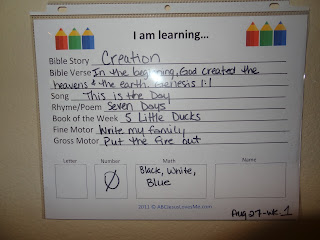 I am learning...
Bible Story Creation
Bible Verse In the beginning, God created the
heavens & the earth. Genesis 1:1
Song This is the Day
Rhyme/Poem Seven Days
Book of the Week 5 Little Ducks
Fine Motor Write my family
Gross Motor Put the fire out
Letter Number Math Name
0 Black, White,
Blue
2011 © ABCJesusLovesMe.com
Aug 27-wk. 1